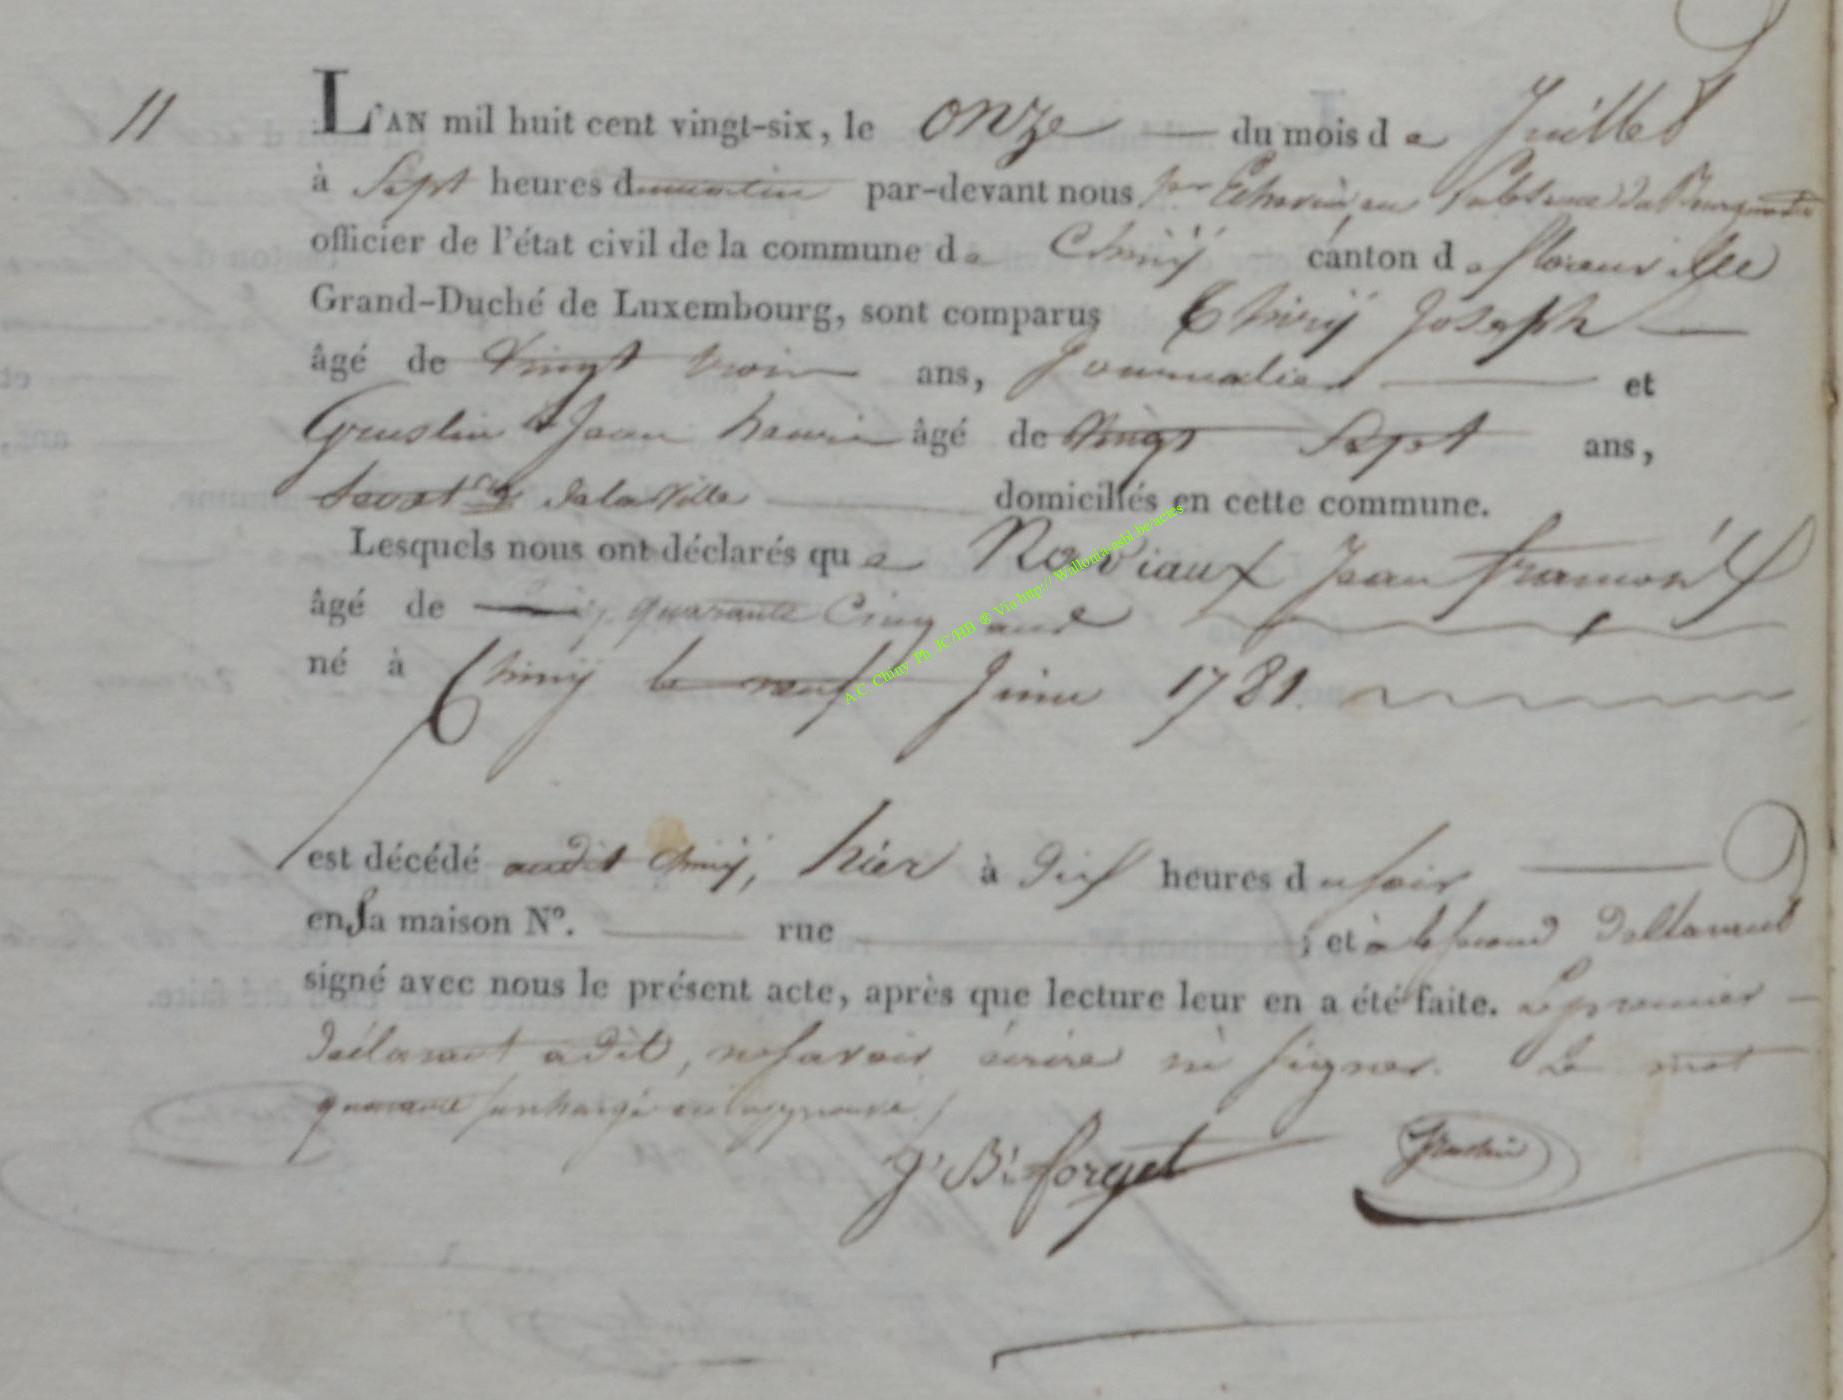 11
L'AN mil huit cent vingt-six, le onze du mois de Juillet
à Sept heures du matin par-devant nous per Echevin en l'absence du Bourgmestre
officier de l'état civil de la commune de Chiny canton de florenville
Grand-Duché de Luxembourg, sont comparus Thiry Joseph
âgé de Vingt trois ans, Journalier et
Gruslin Jean henri âgé de Vingt Sept ans,
Secret.re de la Ville domiciliés en cette commune.
Lesquels nous ont déclarés que Roviaux Jean
âgé de quarante Cinq ans
né à Chiny le neuf Juin 1781.
est décédé audit Chiny, hier à dix heures du soir
en sa maison N°. rue ; et a le second déclarant
signé avec nous le présent acte, après que lecture leur en a été faite. Le premier
déclarant a dit, ne savoir écrire ni signer. Le mot
quarante surchargé est approuvé.
J. B. forget Gruslin
A.C. Chiny Ph. JC/HB @ Via http://Wallonia-asbl.be/actes